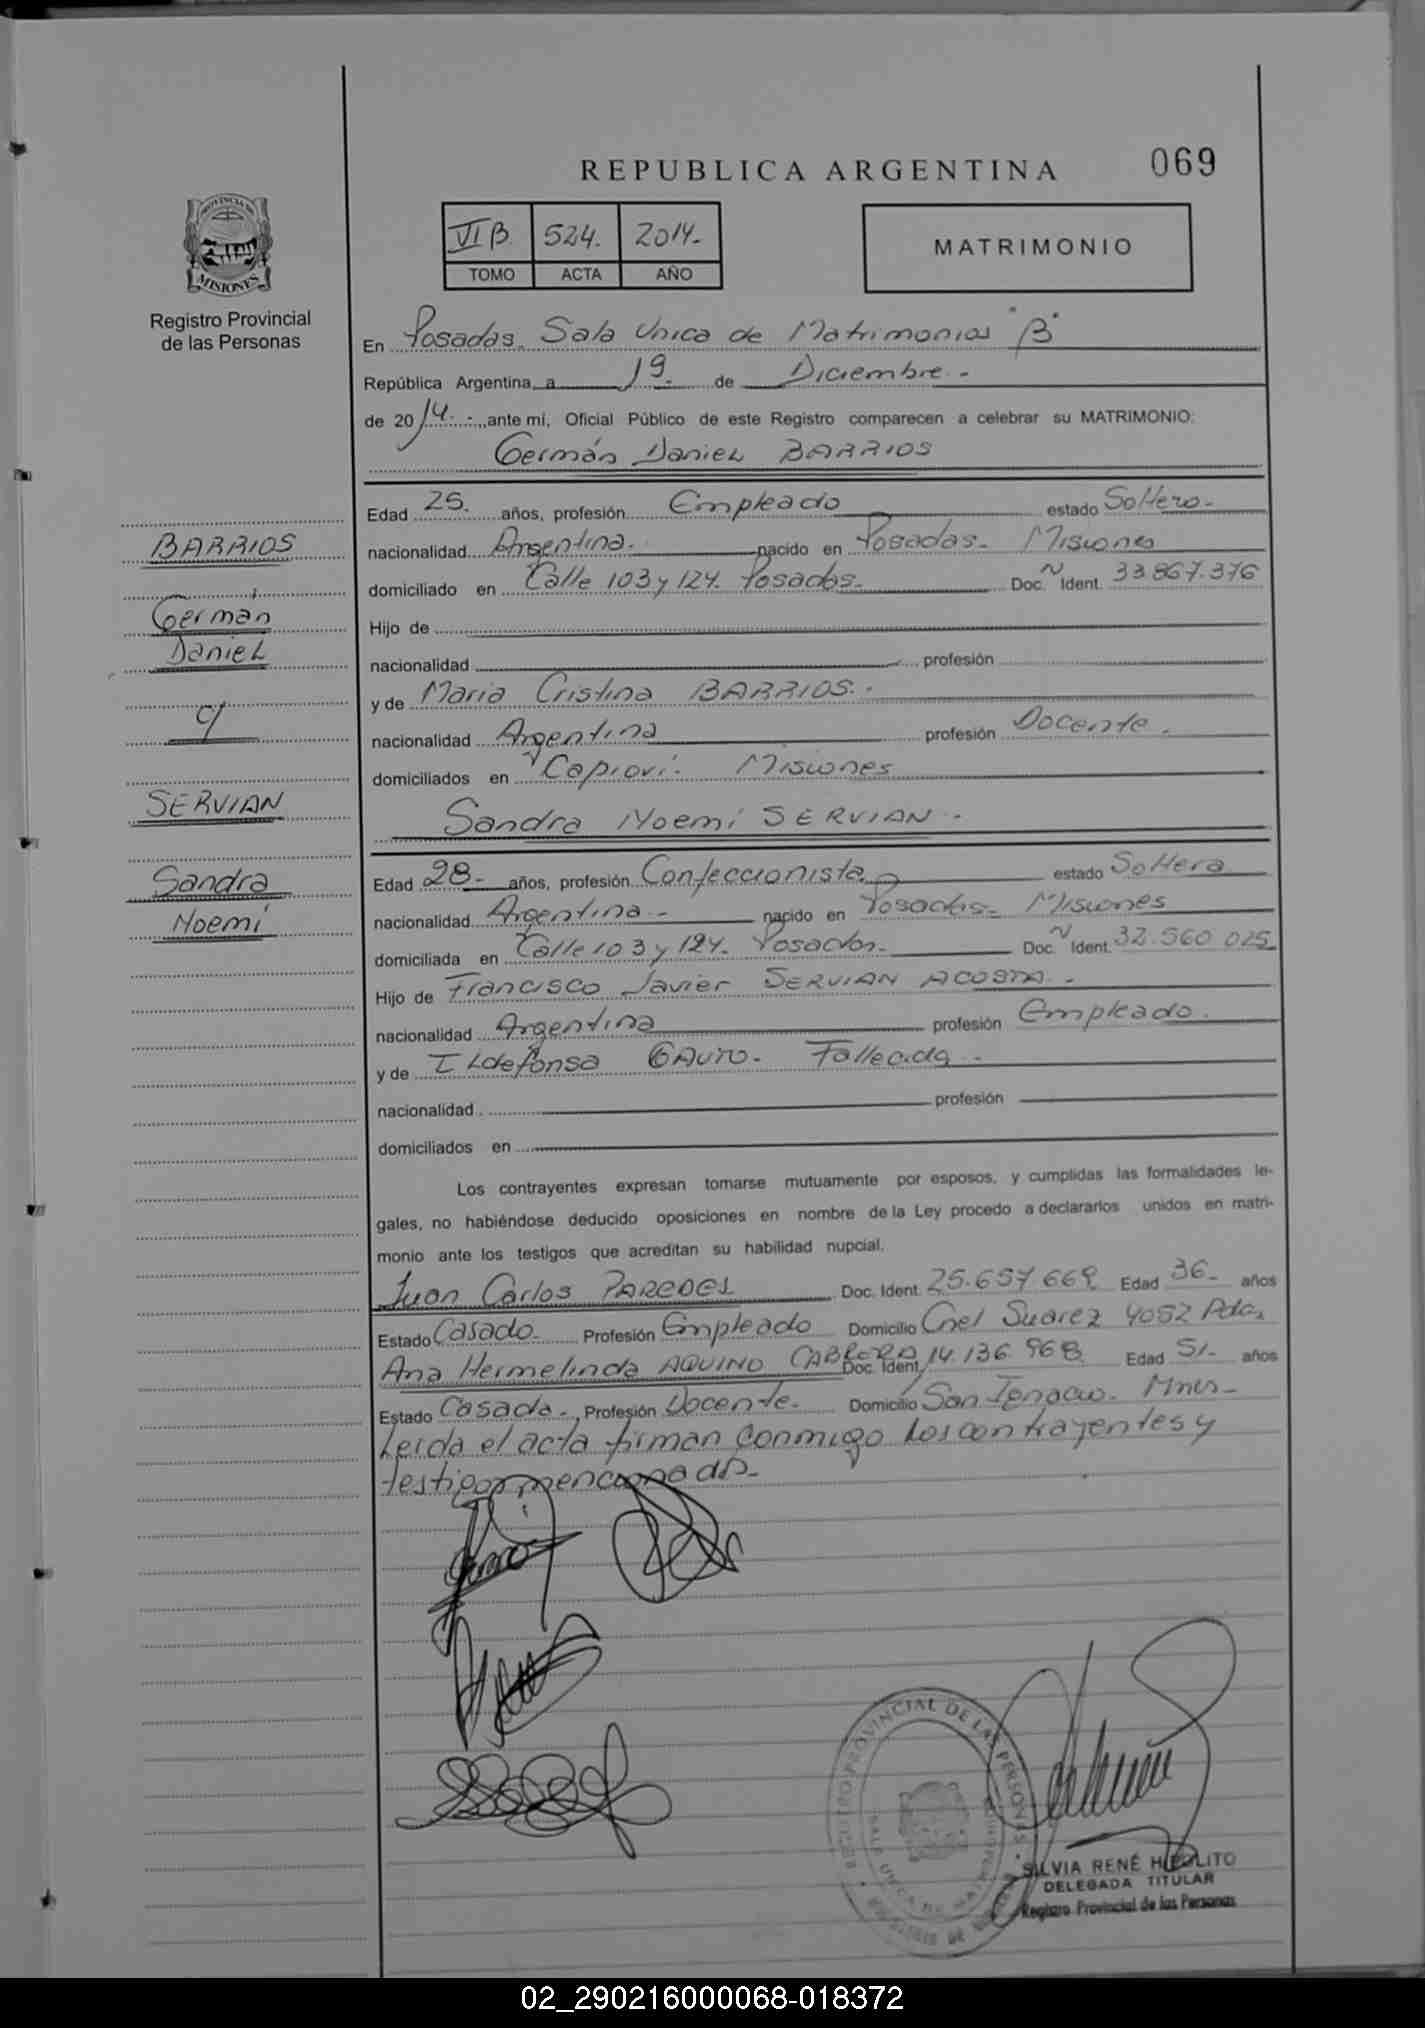 REPUBLICA ARGENTINA
069
PROVINCIA DE
MISIONES
Registro Provincial
de las Personas
VI B. 524. 2014.-
TOMO ACTA AÑO
MATRIMONIO
En Posadas. Sala Unica de Matrimonios "B"
República Argentina, a 19. de Diciembre.-
de 2014.- ante mi, Oficial Público de este Registro comparecen a celebrar su MATRIMONIO:
Germán Daniel BARRIOS
Edad 25. años, profesión Empleado estado Soltero.-
nacionalidad Argentina. nacido en Posadas.- Misiones
domiciliado en Calle 103 y 124. Posadas.- Doc. N Ident. 33.867.376
Hijo de
nacionalidad profesión
y de Maria Cristina BARRIOS.-
nacionalidad Argentina profesión Docente.
domiciliados en Capiovi. Misiones
Sandra Noemi SERVIAN.-
Edad 28.- años, profesión Confeccionista estado Soltera
nacionalidad Argentina.- nacido en Posadas.- Misiones
domiciliada en Calle 103 y 124. Posadas.- Doc. N Ident. 32.560.025
Hijo de Francisco Javier SERVIAN ACOSTA.-
nacionalidad Argentina profesión Empleado.
y de ILdefonsa GAUTO. Fallecida.-
nacionalidad profesión
domiciliados en
Los contrayentes expresan tomarse mutuamente por esposos, y cumplidas las formalidades le-
gales, no habiéndose deducido oposiciones en nombre de la Ley procedo a declararlos unidos en matri-
monio ante los testigos que acreditan su habilidad nupcial.
Juan Carlos PAREDES Doc. Ident. 25.657.669 Edad 36.- años
Estado Casado.- Profesión Empleado Domicilio Cnel Suarez 4052 Pdas.
Ana Hermelinda AQUINO CABRERA Doc. Ident. 14.136.968 Edad 51.- años
Estado Casada.-, Profesión Docente.- Domicilio San Ignacio. Mnes-
Leida el acta firman conmigo los contrayentes y
testigos mencionados.-
BARRIOS
Germán
Daniel
c/
SERVIAN
Sandra
Noemi
REGISTRO PROVINCIAL DE LAS PERSONAS
SILVIA RENÉ HIPOLITO
DELEGADA TITULAR
Registro Provincial de las Personas
02_290216000068-018372